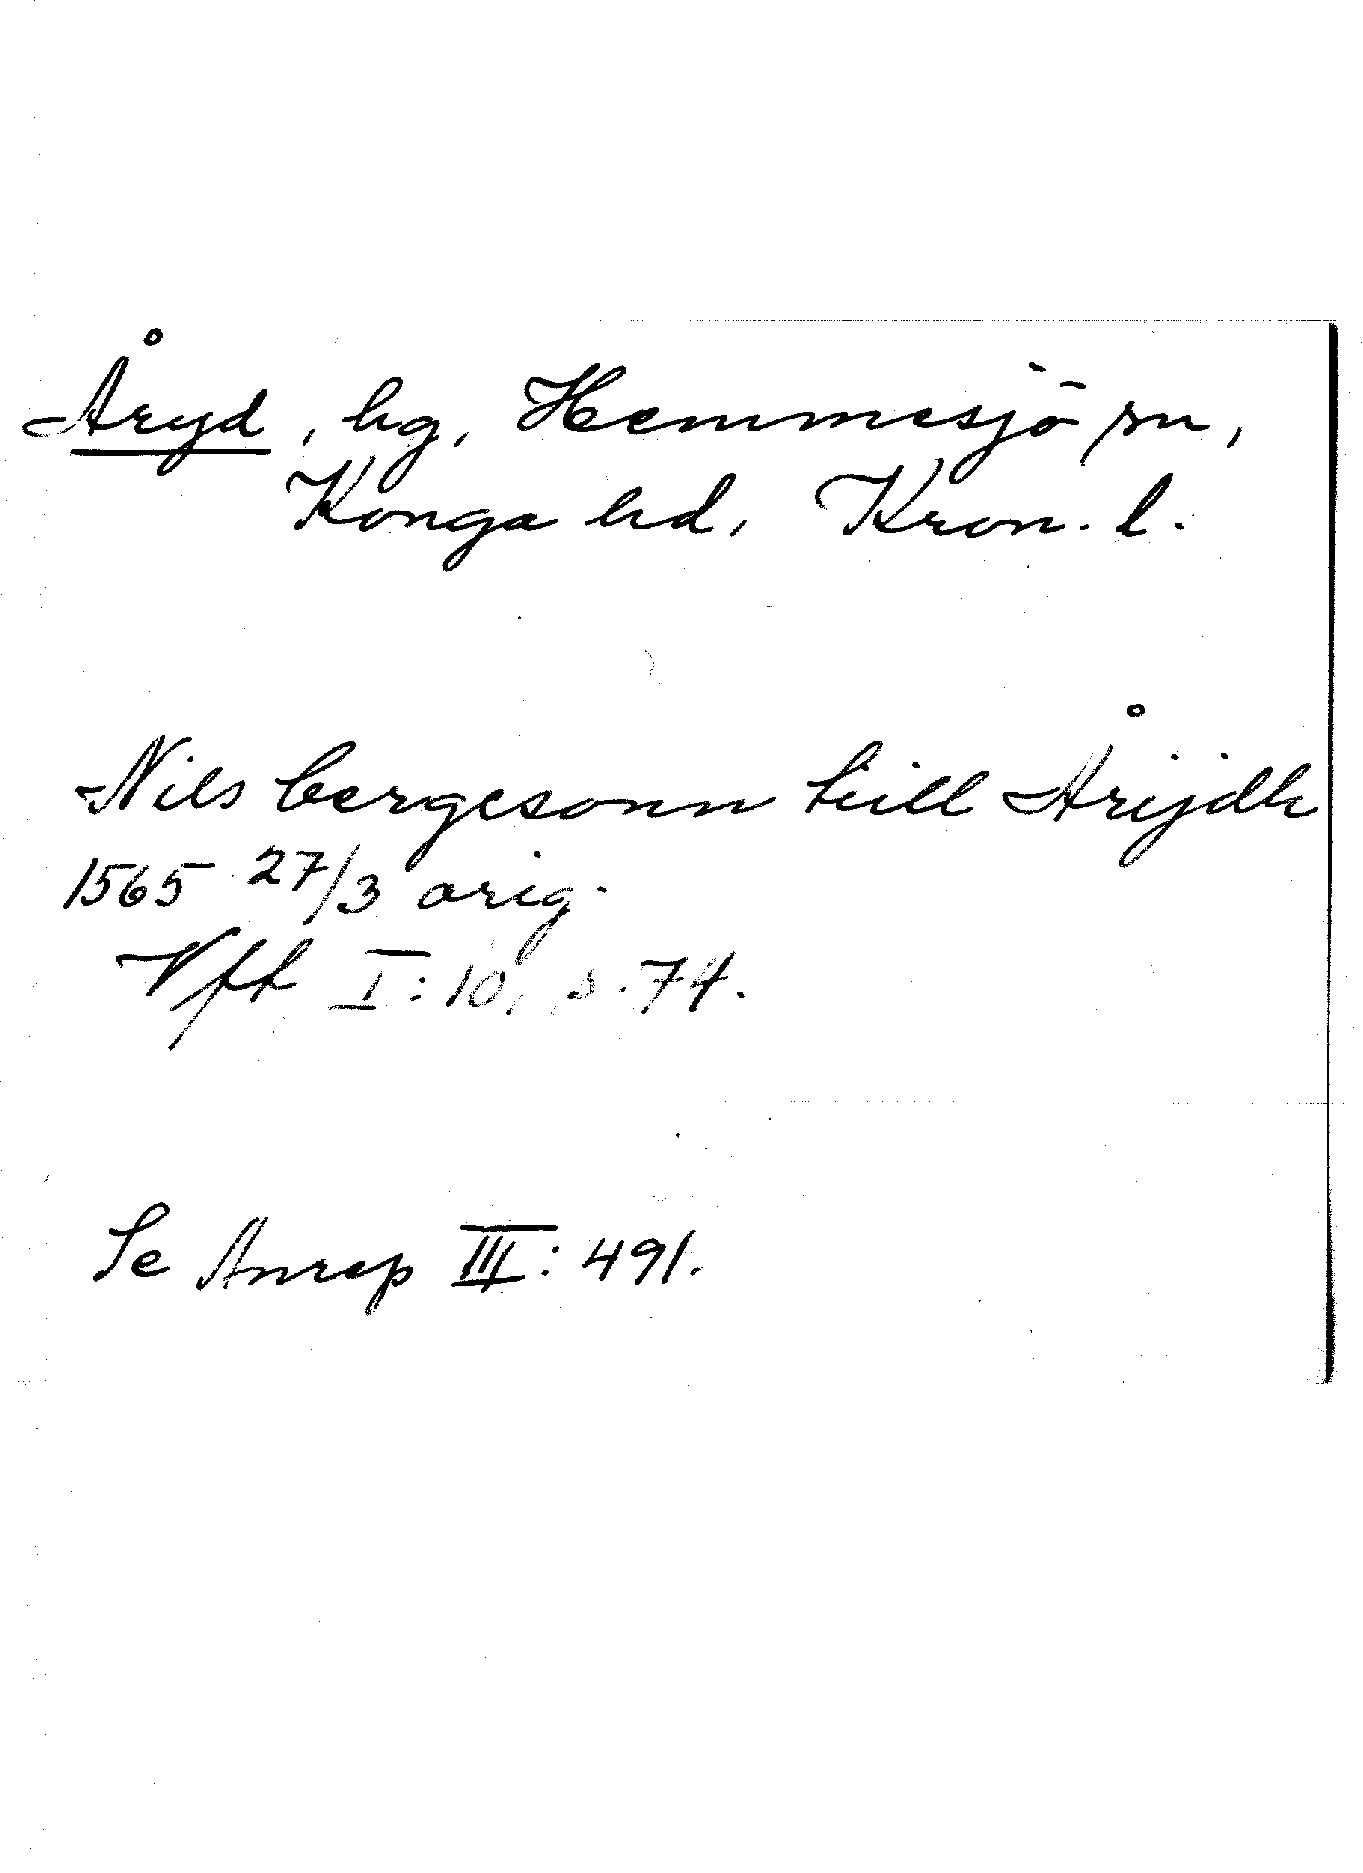 Åryd, hg, Hemmesjö sn,
Konga hd, Kron. l.
Nils bergesonn till Årijdh
1565 27/3 orig.
Vft I:10, s. 74.
Se Anrep III: 491.